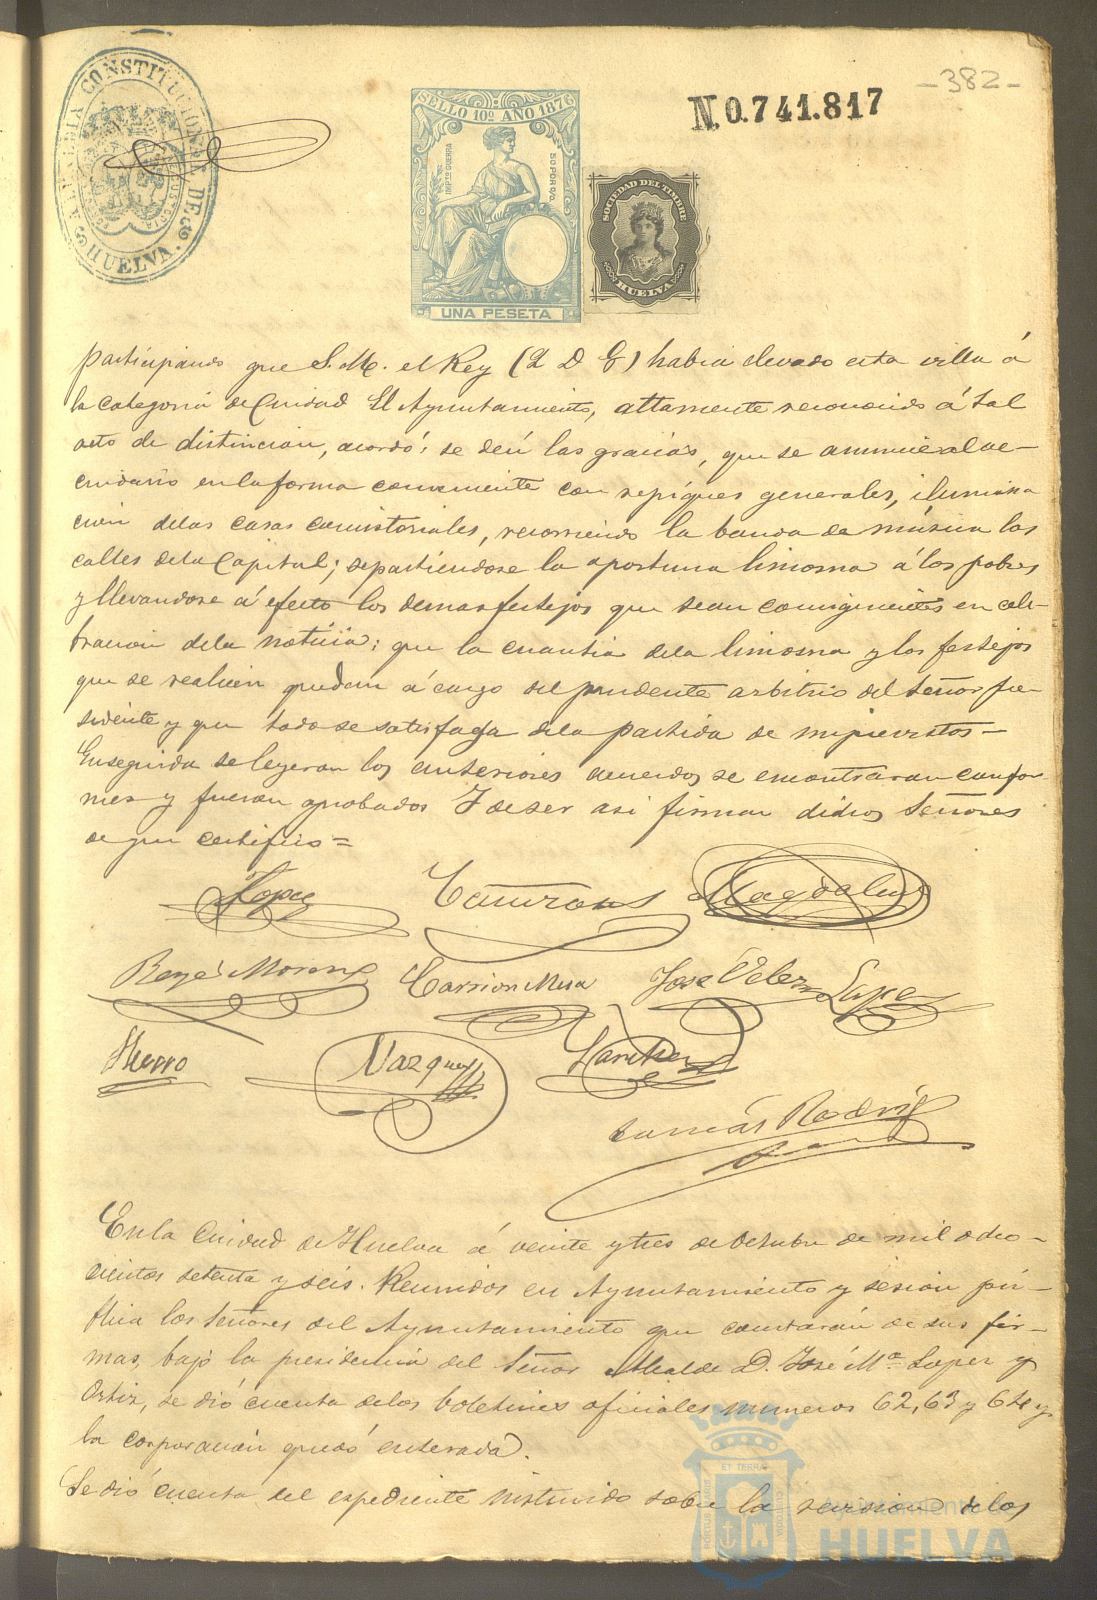 -382-
ALCALDIA CONSTITUCIONAL DE
HUELVA.
SELLO 10º AÑO 1876
50 POR %
UNA PESETA
N. 0.741.817
SOCIEDAD DEL TIMBRE
HUELVA
participando que S. M. el Rey (Q D G) habia elevado esta villa á
la categoria de Ciudad El Ayuntamiento, altamente reconocido á tal
acto de distincion, acordó: se den las gracias, que se anuncie al ve-
cindario en la forma conveniente con repiques generales, ilumina
cion de las casas consistoriales, recorriendo la banda de música las
calles de la Capital; repartiendose la oportuna limosna á los pobres
y llevandose á efecto los demas festejos que sean consiguientes en cele-
bracion de la noticia: que la cuantia de la limosna y los festejos
que se realicen quedan á cargo del prudente arbitrio del Señor Pre
sidente y que todo se satisfaga de la partida de imprevistos-
Enseguida se leyeron los anteriores acuerdos se encontraron confor
mes y fueron aprobados Y de ser asi firman dichos Señores
de que certifico=
Lopez Magdalena
Moreno Carrion Mesa José Velez Lopez
Hierro Vazquez
Tomás Rodrig
En la Ciudad de Huelva á veinte y tres de Octubre de mil ocho-
cientos setenta y seis. Reunidos en Ayuntamiento y sesion pú-
blica los Señores del Ayuntamiento que constarán de sus fir-
mas, bajo la presidencia del Señor Alcalde D. José Mª Lopez y
Ortiz, se dió cuenta de los boletines oficiales numeros 62, 63 y 64 y
la corporacion quedó enterada.
Se dió cuenta del expediente instruido sobre la revision de los
PORTUS MARIS
ET TERRAE
CUSTODIA
Ayuntamiento de
HUELVA